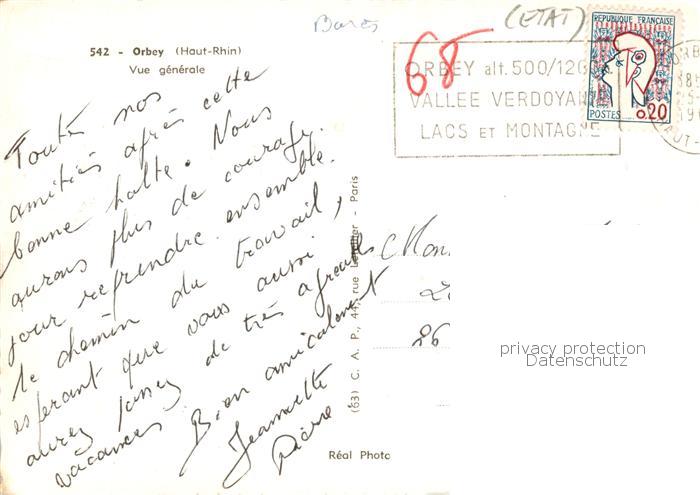 Barès
(ETAT)
68
542 - Orbey (Haut-Rhin)
Vue générale
ORBEY alt. 500/120
VALLEE VERDOYAN
LACS ET MONTAGNE
REPUBLIQUE FRANÇAISE
0,20
POSTES
ORB
HAUT-
Toutes nos
amitiés après cette
bonne halte. Nous
aurons plus de courage
pour reprendre ensemble
le chemin du travail,
esperant que vous aussi
aurez passez de très agreables
vacances.
Bien amicalement
Jeannette
Pierre
(63) C. A. P., 44, rue Letellier - Paris
Mon
86
Réal Photo
privacy protection
Datenschutz